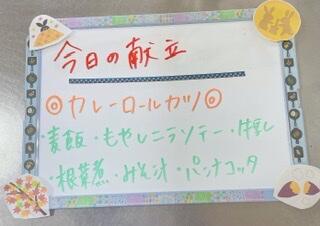 今日の献立
◎カレーロールカツ◎
・麦飯・もやしニラソテー・牛乳
・根菜煮・みそ汁・パンナコッタ